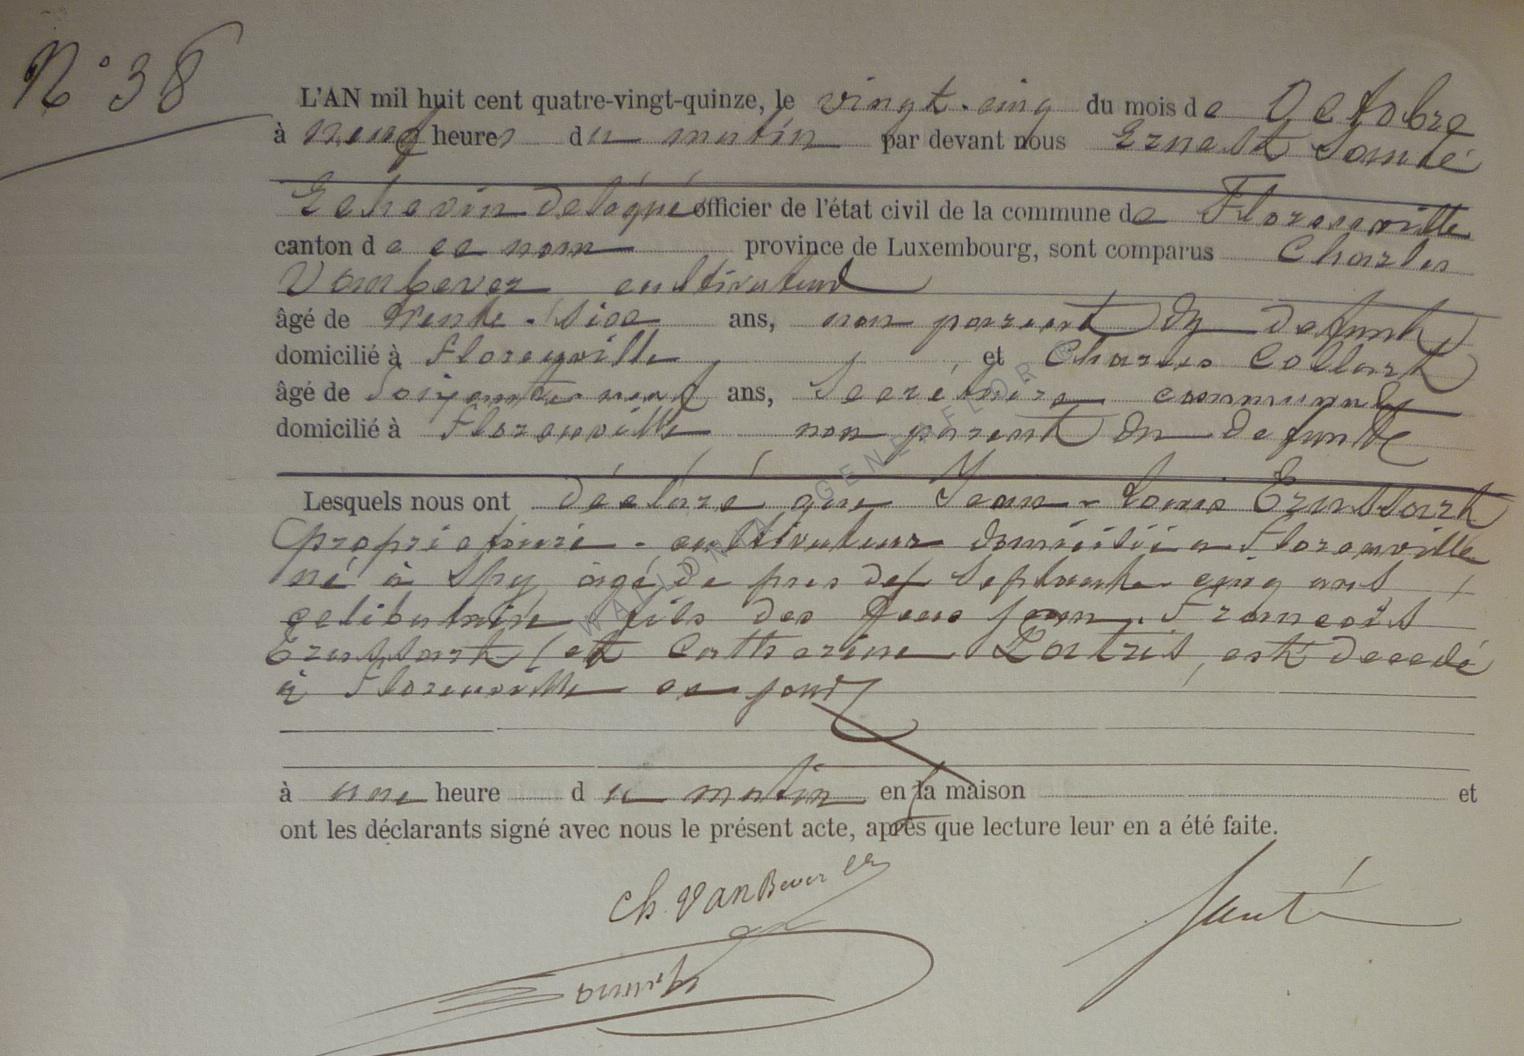 N° 38
L'AN mil huit cent quatre-vingt-quinze, le vingt-cinq du mois de Octobre
à neuf heures du matin par devant nous Ernest Santé
Echevin délégué officier de l'état civil de la commune de Florenville
canton de ce nom province de Luxembourg, sont comparus Charles
Vanbever cultivateur
âgé de trente-six ans, non parent du defunt,
domicilié à Florenville et Charles Collart
âgé de Soixante neuf ans, Secrétaire communal
domicilié à Florenville non parent du defunt
Lesquels nous ont déclaré que Jean-Louis Erussart
propriétaire-cultivateur domicilié a Florenville
né à Spy âgé de près de Septante cinq ans,
celibataire fils des feux Jean-François
Erussart et Catherine, est decedé
à Florenville ce jour
à une heure du matin en la maison et
ont les déclarants signé avec nous le présent acte, après que lecture leur en a été faite.
Ch VanBever
Santé
WALLONIA GENEAFLOR